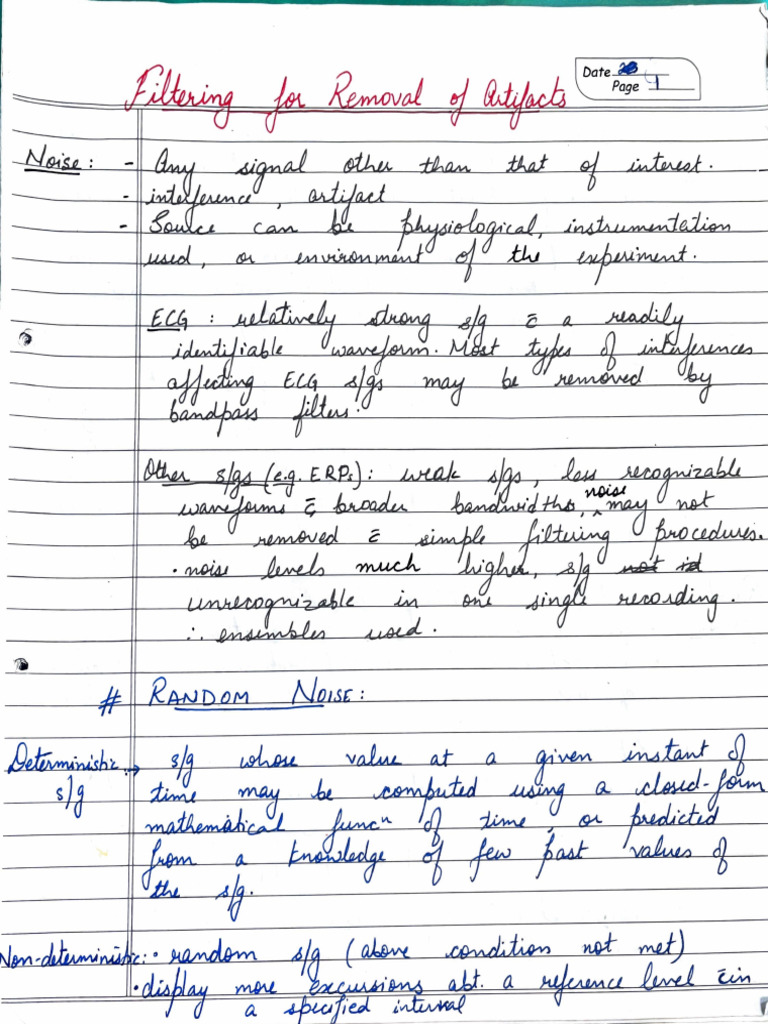 Date
Page 1
Filtering for Removal of Artifacts
Noise : - Any signal other than that of interest.
- interference, artifact
- Source can be physiological, instrumentation
used, or environment of the experiment.
ECG : relatively strong s/g c̄ a readily
identifiable waveform. Most types of interferences
affecting ECG s/gs may be removed by
bandpass filters.
Other s/gs (e.g. ERPs) : weak s/gs, less recognizable
waveforms c̄ broader bandwidths, noise may not
be removed c̄ simple filtering procedures.
. noise levels much higher, s/g
unrecognizable in one single recording.
∴ ensembles used.
# RANDOM NOISE :
Deterministic s/g → s/g whose value at a given instant of
time may be computed using a closed-form
mathematical funcⁿ of time, or predicted
from a knowledge of few past values of
the s/g.
Non-deterministic : • random s/g (above condition not met)
• display more excursions abt. a reference level c̄in
a specified interval